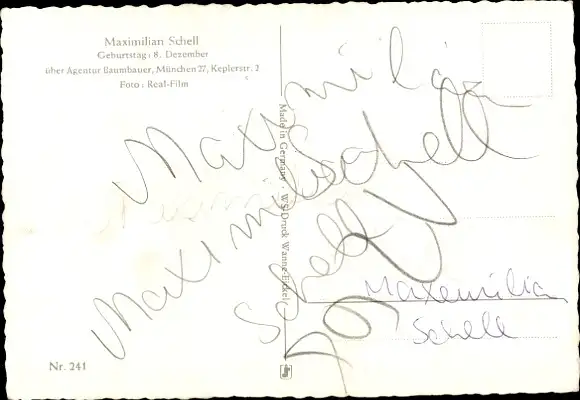 Maximilian Schell
Geburtstag: 8. Dezember
über Agentur Baumbauer, München 27, Keplerstr. 2
Foto: Real-Film
Maximilian
Schell
Maximilian
Schell
Made in Germany · WS-Druck Wanne-Eickel
Maxemilian
Schell
Nr. 241